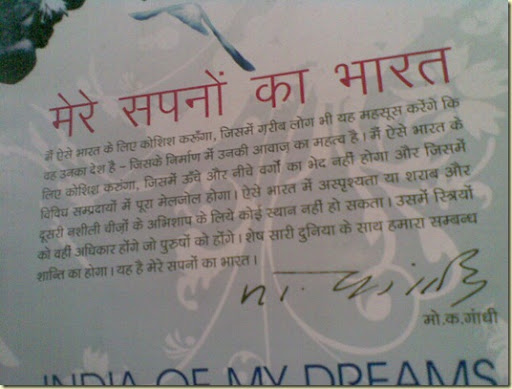 मेरे सपनों का भारत
मैं ऐसे भारत के लिए कोशिश करूँगा, जिसमें ग़रीब लोग भी यह महसूस करेंगे कि
वह उनका देश है - जिसके निर्माण में उनकी आवाज़ का महत्व है। मैं ऐसे भारत के
लिए कोशिश करूंगा, जिसमें ऊँचे और नीचे वर्गों का भेद नहीं होगा और जिसमें
विविध सम्प्रदायों में पूरा मेलजोल होगा। ऐसे भारत में अस्पृश्यता या शराब और
दूसरी नशीली चीज़ों के अभिशाप के लिये कोई स्थान नहीं हो सकता। उसमें स्त्रियों
को वही अधिकार होंगे जो पुरुषों को होंगे। शेष सारी दुनिया के साथ हमारा सम्बन्ध
शान्ति का होगा। यह है मेरे सपनों का भारत।
मो.क.गांधी
INDIA OF MY DREAMS